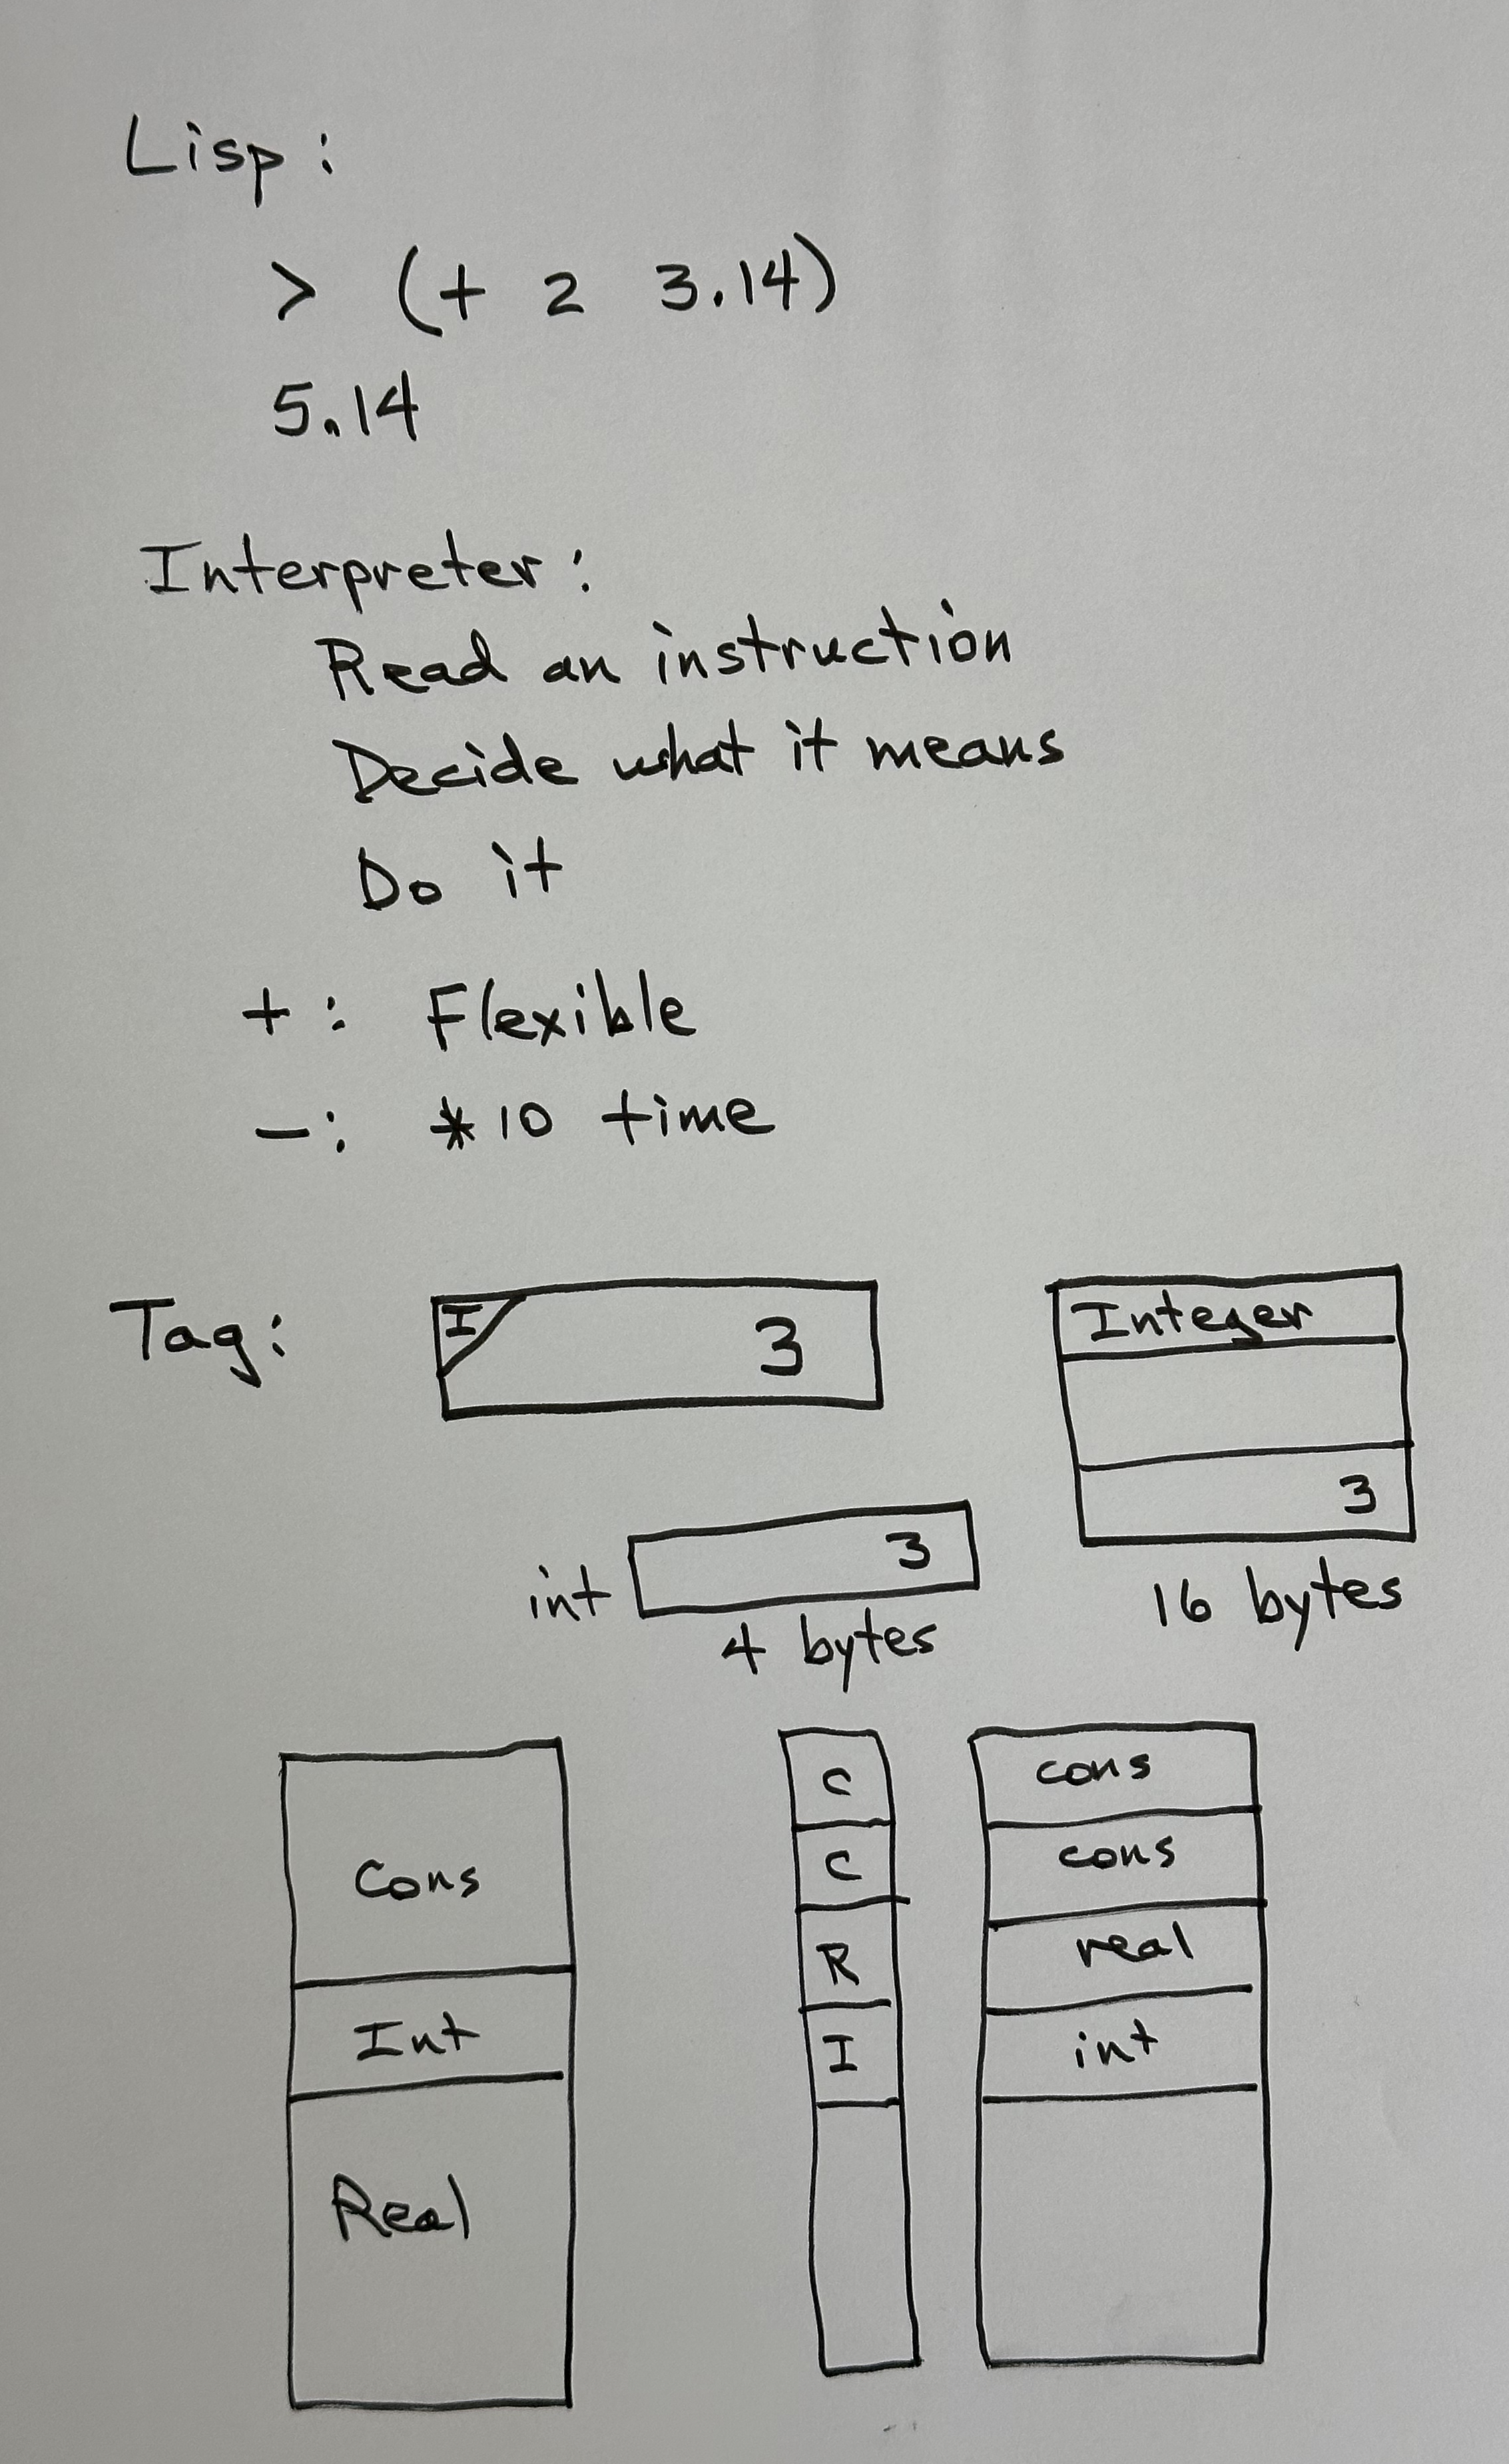 Lisp:
> (+ 2 3.14)
5.14
Interpreter:
Read an instruction
Decide what it means
Do it
+: Flexible
-: *10 time
Tag:
I 3
Integer
3
16 bytes
int 3
4 bytes
Cons
Int
Real
C
C
R
I
cons
cons
real
int